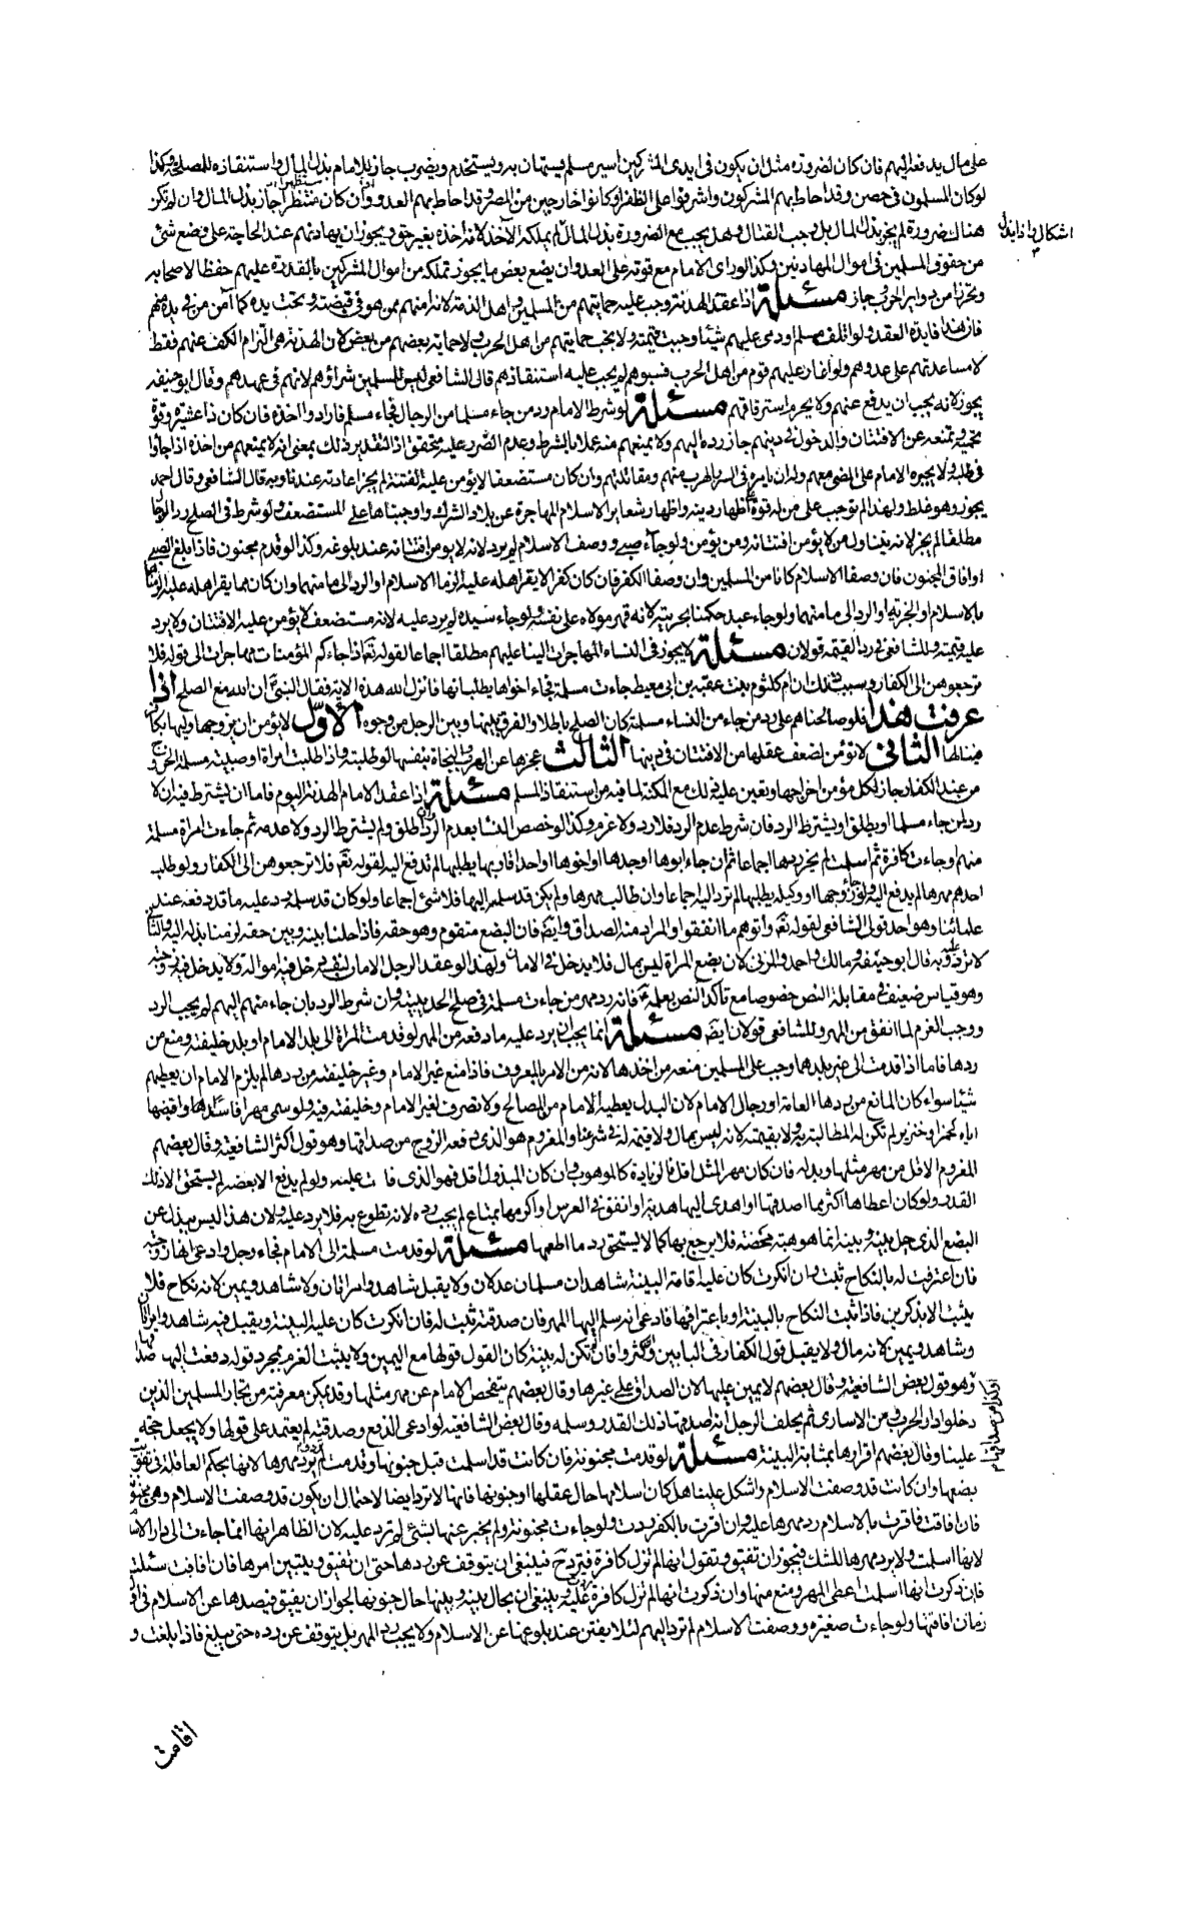 على مال يدفعه اليهم فان كان لضرورة مثل ان يكون فى ايدى المشركين اسير مسلم يستهان به ويستخدم ويضرب جاز للامام بذل المال واستنقاذه للمصلحة وكذا
لو كان المسلمون فى حصن وقد احاط بهم المشركون واشرفوا على الظفر او كانوا خارجين من المصر وقد احاط بهم العدو وان كان مستظهرا جاز بذل المال وان لم تكن
هناك ضرورة لم يجز بذل المال بل وجب القتال وهل يجب مع الضرورة بذل المال لم يملكه الآخذ لانه اخذه بغير حق ويجوز ان يهادنهم عند الحاجة على وضع شئ
اشكال واذا بذل
من حقوق المسلمين فى اموال المهادنين وكذا لو راى الامام مع قوته على العدو ان يضع بعض ما يجوز تملكه من اموال المشركين بالقدرة عليهم حفظا لاصحابه
وتحرزا من دواير الحروب جاز مسئلة اذا عقد الهدنة وجب عليه حمايتهم من المسلمين واهل الذمة لانه امنهم ممن هو فى قبضته وتحت يده كما آمن من فى يده منهم
فان هذا فايدة العقد ولو اتلف مسلم او ذمى عليهم شيئا وجبت قيمته ولا يجب حمايتهم من اهل الحرب ولا حماية بعضهم من بعض لان الهدنة هى التزام الكف عنهم فقط
لا مساعدتهم على عدوهم ولو اغار عليهم قوم من اهل الحرب فسبوهم لم يجب عليه استنقاذهم قال الشافعى ليس للمسلمين شراؤهم لانهم فى عهدهم وقال ابو حنيفه
يجوز لانه يجب ان يدفع عنهم ولا يحرم استرقاقهم مسئلة لو شرط الامام رد من جاء مسلما من الرجال فجاء مسلم فارادوا اخذه فان كان ذا عشيرة وقوة
تحميه وتمنعه عن الافتتان والدخول فى دينهم جاز رده اليهم ولا يمنعهم منه عملا بالشرط وعدم الضرر عليه متحقق اذ التقدير ذلك بمعنى انه لا يمنعهم من اخذه اذا جاؤا
فى طلبه ولا يجبره الامام على المضى معهم وله ان يامره فى السر بالهرب منهم ومقاتلتهم وان كان مستضعفا لا يؤمن عليه الفتنة لم يجز اعادته عندنا وبه قال الشافعى وقال احمد
يجوز وهو غلط ولهذا لم نوجب على من له قوة على اظهار دينه واظهار شعاير الاسلام المهاجرة عن بلاد الشرك واوجبناها على المستضعف ولو شرط فى الصلح رد الرجال
مطلقا لم يجز لانه يتناول من لا يؤمن افتتانه ومن يؤمن ولو جاء صبى ووصف الاسلام لم يرد لانه لا يومن افتتانه عند بلوغه وكذا لو قدم مجنون فاذا بلغ الصبى
او افاق المجنون فان وصفا الاسلام كانا من المسلمين وان وصفا الكفر فان كان كفرا لا يقر اهله عليه الزما الاسلام او الرد الى مامنهما وان كان مما يقر اهله عليه الزما
بالاسلام او الجزية او الرد الى مامنهما ولو جاء عبد حكمنا بحريته لانه قهر مولاه على نفسه ولو جاء سيده لم يرد عليه لانه مستضعف لا يؤمن عليه الافتتان ولا يرد
عليه قيمته وللشافعى فى رد القيمة قولان مسئلة لا يجوز فى النساء المهاجرات الينا عليهم مطلقا اجماعا لقوله تعالى اذا جاءكم المؤمنات مهاجرات الى قوله فلا
ترجعوهن الى الكفار وسبب ذلك ان ام كلثوم بنت عقبه بن ابى معيط جاءت مسلمة فجاء اخواها يطلبانها فانزل الله هذه الاية فقال النبى ان الله منع الصلح اذا
عرفت هذا فلو صالحناهم على رد من جاء من النساء مسلمة كان الصلح باطلا والفرق بينها وبين الرجل من وجوه الاوّل لا يؤمن ان يزوجها وليها بكافر
فينالها الثانى لا تؤمن لضعف عقلها من الافتتان فى دينها الثالث عجزها عن الهرب والنجاة بنفسها لو طلبته واذا طلبت امراة او صبيته مسلمة الخروج
من عند الكفار جاز لكل مؤمن اخراجها وتعين عليه ذلك مع المكنة لما فيه من استنقاذ المسلم مسئلة اذا عقد الامام الهدنة اليوم فاما ان يشترط فيه ان لا
رد لمن جاء مسلما او يطلق او يشترط الرد فان شرط عدم الرد فلا رد ولا غرم وكذا لو خصص النساء بعدم الرد وان اطلق ولم يشترط الرد ولا عدمه ثم جاءت امراة مسلمة
منهم او جاءت كافرة ثم اسلمت لم يجز ردها اجماعا ثم ان جاء ابوها او جدها او اخوها او احد اقاربها يطلبها لم تدفع اليه لقوله تعالى فلا ترجعوهن الى الكفار ولو طلب
احدهم مهرها لم يدفع اليه ولو جاء زوجها او وكيله يطلبها لم ترد اليه اجماعا وان طالب بمهرها ولم يكن قد سلمه اليها فلا شئ اجماعا ولو كان قد سلمه رد عليه ما قد دفعه عند
علمائنا وهو احد قولى الشافعى لقوله تعالى وآتوهم ما انفقوا والمراد منه الصداق وايضا فان البضع متقوم وهو حقه فاذا حلنا بينه وبين حقه لزمنا بذله اليه والثانى
لا ترد عليه وبه قال ابو حنيفه ومالك واحمد والمزنى لان بضع المراة ليس بمال فلا يدخل فى الامان ولهذا لو عقد الرجل الامان لنفسه دخل فيه امواله ولا يدخل فيه زوجته
وهو قياس ضعيف فى مقابلة النص خصوصا مع تاكد النص بعمله فانه رد مهر من جاءت مسلمة فى صلح الحديبية وان شرط الرد بان جاء منهم اليهم لم يجب الرد
ووجب الغرم لما انفق من المهر وللشافعى قولان ايضا مسئلة انما يجب ان يرد عليه ما دفعه من المهر لو قدمت المراة الى بلد الامام او بلد خليفته ومنع من
ردها فاما اذا قدمت الى غير بلدهما وجب على المسلمين منعه من اخذها لانه من الامر بالمعروف فاذا منع غير الامام وغير خليفته من ردها لم يلزم الامام ان يعطيهم
شيئا سواء كان المانع من ردها العامة او رجال الامام لان البدل يعطيه الامام من المصالح ولا تصرف لغير الامام وخليفته فيه ولو سمى مهرا فاسدا واقبضها
اياه كخمر او خنزير لم تكن له المطالبة به ولا بقيمته لانه ليس بمال ولا قيمة له فى شرعنا والمغروم هو الذى دفعه الزوج من صداقها وهو قول اكثر الشافعية وقال بعضهم
المغروم الاقل من مهر مثلها وبدله فان كان مهر المثل اقل فالزيادة كالموهوب وان كان المبذول اقل فهو الذى فات عليه ولو لم يدفع الا بعضه لم يستحق الا ذلك
القدر ولو كان اعطاها اكثر مما اصدقها او اهدى اليها هدية او انفق فى العرس او اكرمها بمتاع لم يجب رده لانه تطوع به فلا يرد عليه ولان هذا ليس ببذل عن
البضع الذى حيل بينه وبينه انما هو هبة محضة فلا يرجع بها كما لا يستحق رد ما اطعمها مسئلة لو قدمت مسلمة الى الامام فجاء رجل وادعى انها زوجته
فان اعترفت له بالنكاح ثبت وان انكرت كان عليه اقامة البينة شاهدان مسلمان عدلان ولا يقبل شاهد وامراتان ولا شاهد ويمين لانه نكاح فلا
يثبت الا بذكرين فاذا ثبت النكاح بالبينة او باعترافها فادعى انه سلم اليها المهر فان صدقته ثبت له فان انكرت كان عليه البينة ويقبل فيه شاهد وامراتان
وشاهد ويمين لانه مال ولا يقبل قول الكفار فى البابين وان كثروا فان لم تكن له بينة كان القول قولها مع اليمين ولا يثبت الغرم بمجرد قوله دفعت اليها صداقها
وهو قول بعض الشافعية وقال بعضهم لا يمين عليها لان الصداق على غيرها وقال بعضهم يتفحص الامام عن مهر مثلها وقد يمكن معرفته من تجار المسلمين الذين
دخلوا دار الحرب ومن الاسارى ثم يحلف الرجل انه اصدقها ذلك القدر وسلمه وقال بعض الشافعية لو ادعى الدفع وصدقته لم يعتمد على قولها ولا يجعل حجه
علينا وقال بعضهم اقرارها بمثابة البينة مسئلة لو قدمت مجنونة فان كانت قد اسلمت قبل جنونها وقدمت لم ترد ورد مهرها لانها بحكم العاقلة فى تفويت
بضعها وان كانت قد وصفت الاسلام واشكل علينا هل كان اسلامها حال عقلها او جنونها فانها لا ترد ايضا لاحتمال ان يكون قد وصفت الاسلام وهى مجنونة
فان افاقت فاقرت بالاسلام رد مهرها عليه وان اقرت بالكفر ردت ولو جاءت مجنونة ولم يخبر عنها بشئ لم ترد عليه لان الظاهر انها انما جاءت الى دار الاسلام
لانها اسلمت ولا يرد مهرها للشك فيجوز ان تفيق وتقول انها لم تزل كافرة فيرد ح فينبغى ان يتوقف عن ردها حتى ان تفيق ويتبين امرها فان افاقت سئلت
فان ذكرت انها اسلمت اعطى المهر ومنع منها وان ذكرت انها لم تزل كافرة ينبغى ان يحال بينه وبينها حال جنونها لجواز ان يفيق فيصدها عن الاسلام فى اقل
زمان افاقتها ولو جاءت صغيرة ووصفت الاسلام لم ترد اليهم لئلا يفتن عند بلوغها عن الاسلام ولا يجب رد المهر بل يتوقف عن رده حتى يبلغ فاذا بلغت و
اقامت